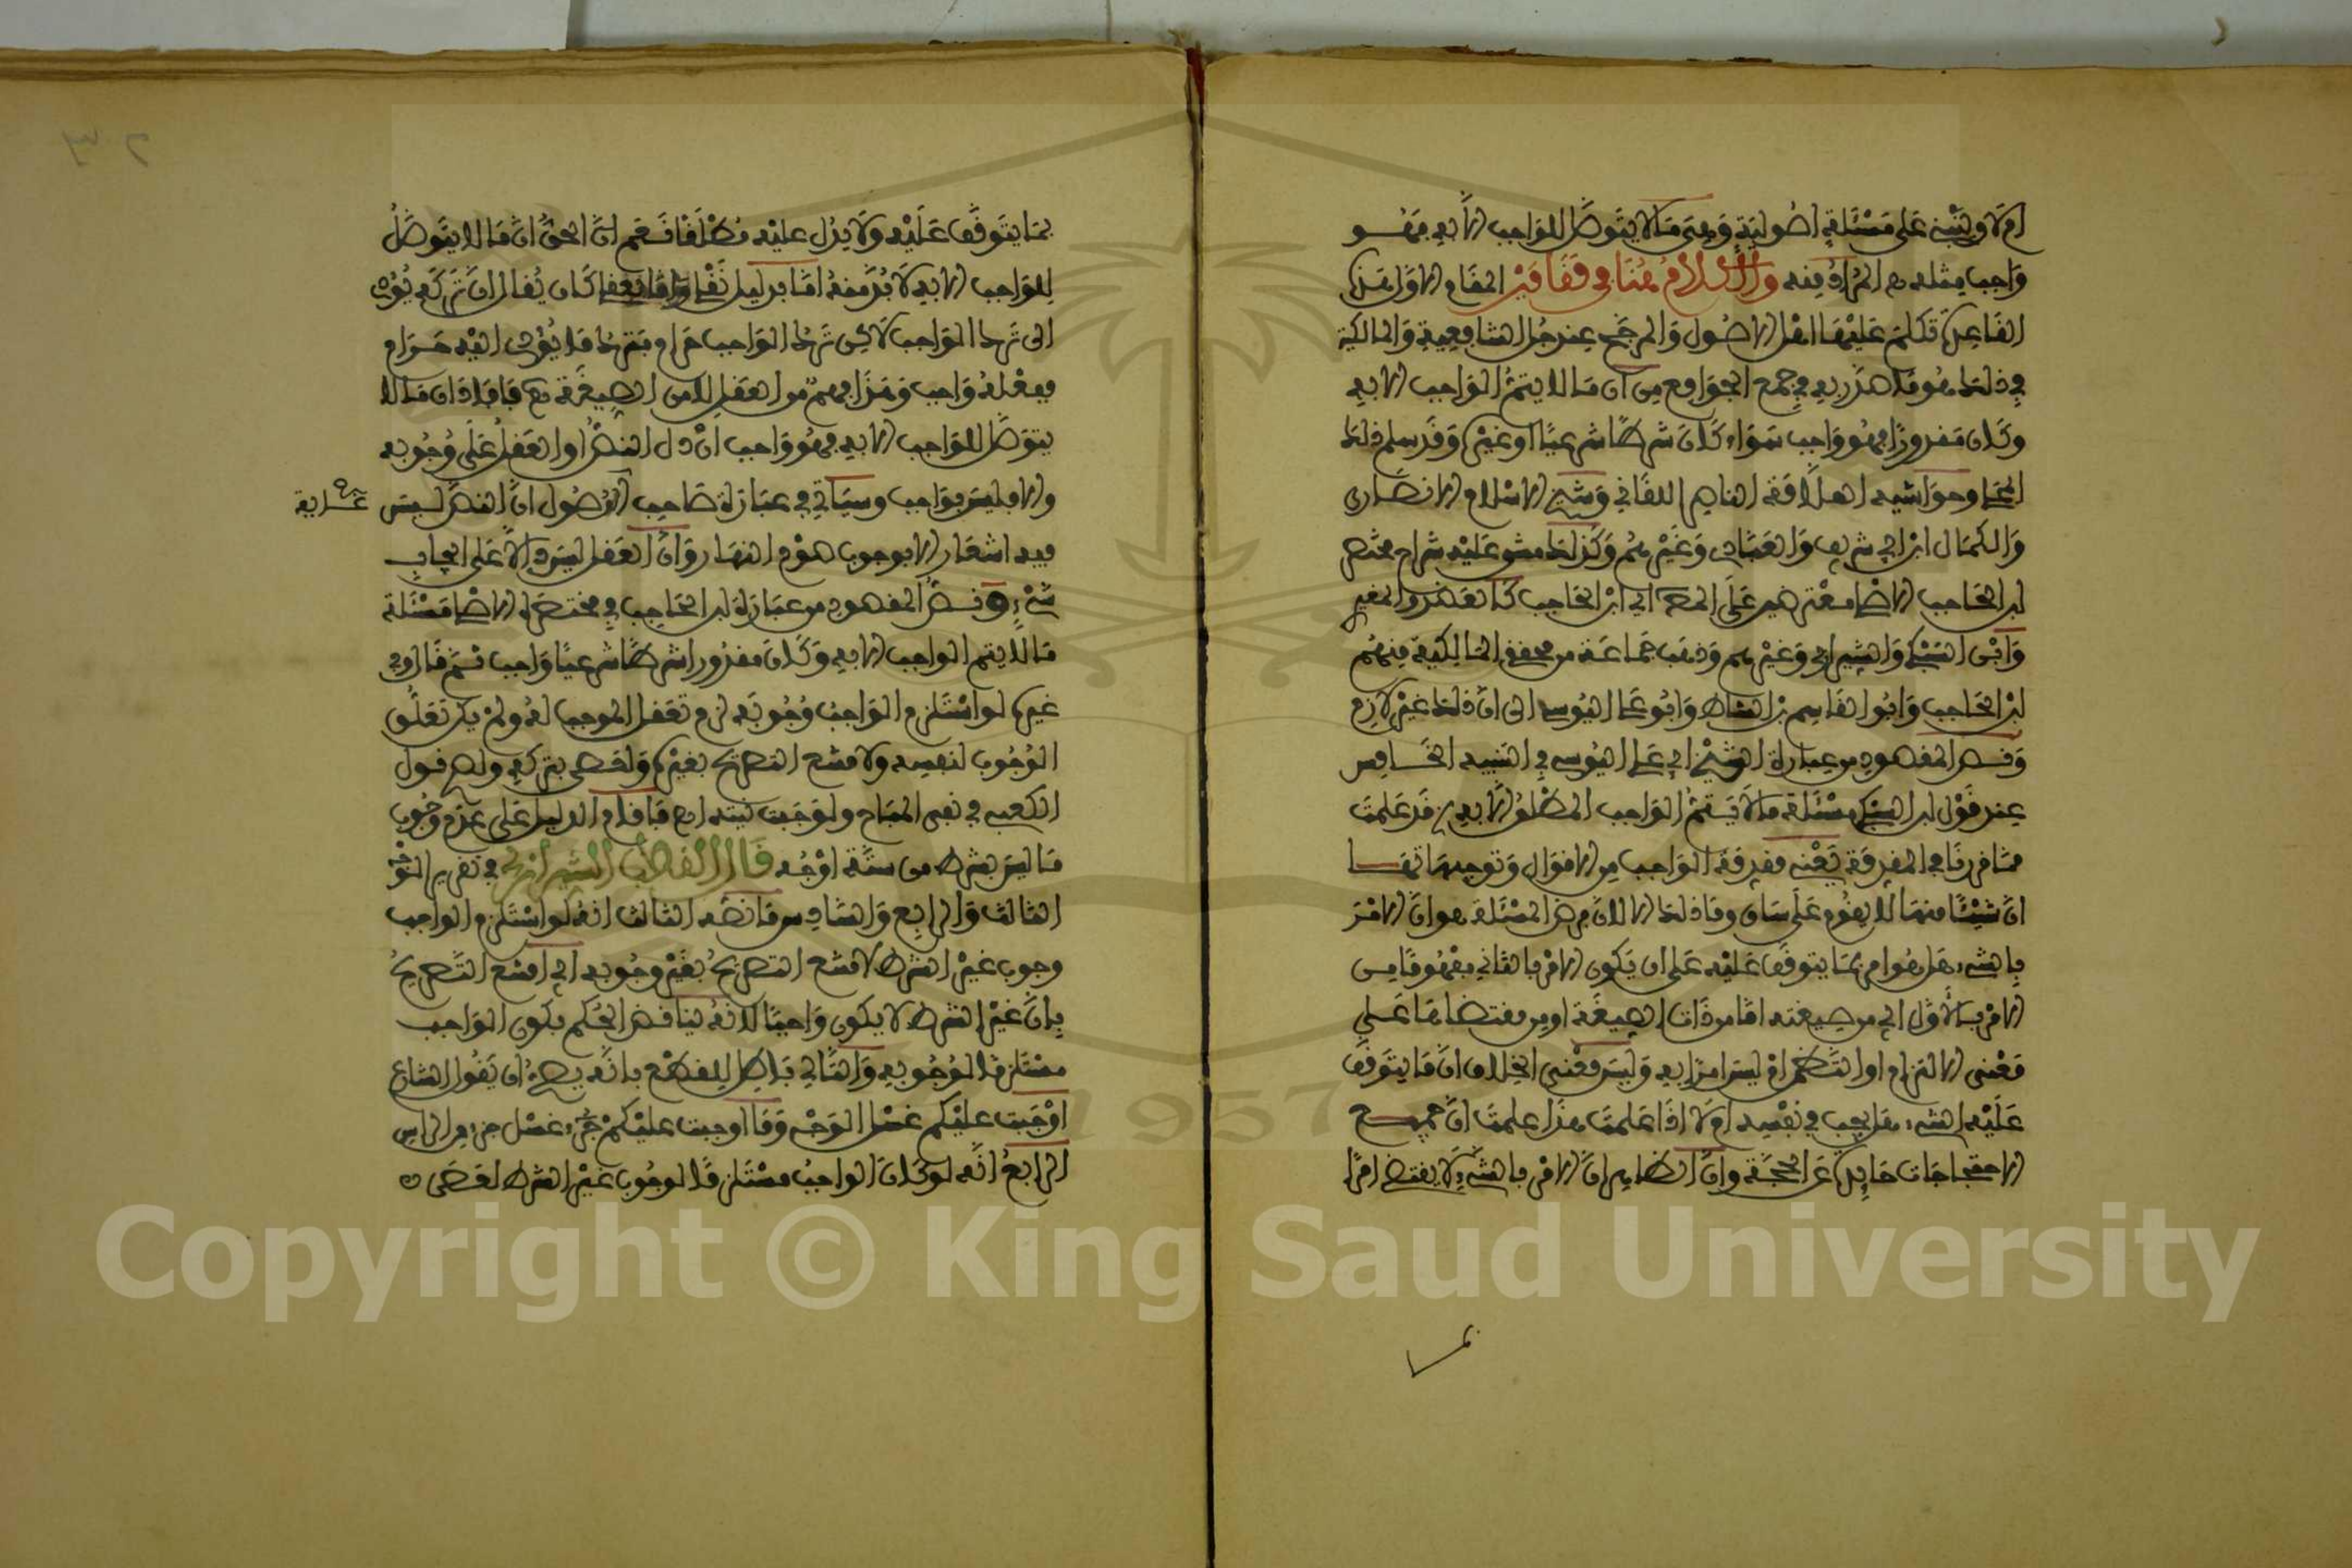 ام لا وينبني على مسئلة اصولية وهي ما لا يتوصل للواجب الا به فهو
واجب مثله ام المراد منه والكلام هنا في مقامين المقام الاول هذه
القاعدة تكلم عليها اهل الاصول والمرجح عند جل الشافعية والمالكية
في ذلك هو ما صدر به في جمع الجوامع من ان ما لا يتم الواجب الا به
وكان مقدورا فهو واجب سواء كان شرطا شرعيا او غيره وقد سلم ذلك
المحلى وحواشيه العلامة الناصر اللقاني وشيخ الاسلام الانصاري
والكمال ابن ابي شريف والعبادي وغيرهم وكذلك مشى عليه شراح مختصر
ابن الحاجب الاصلي معترضين على المص اي ابن الحاجب كالعضد والمغير
وابن السبكي والشيرازي وغيرهم وذهب جماعة من محققي المالكية منهم
ابن الحاجب وابو القاسم بن الشاط وابو علي اليوسي الى ان ذلك غير لازم
ونص المقصود من عبارة الشيخ ابي علي اليوسي في التنبيه الخامس
عند قول ابن السبكي مسئلة ما لا يتم الواجب المطلق الا به الخ قد علمت
مما قررنا في المفرقة يعني مفرقة الواجب من الاقوال وتوجيهاتها
ان شيئا منها لا يقوم على ساق وما ذلك الا لان فرض المسئلة هو ان الامر
بالشيء هل هو امر بما يتوقف عليه على ان يكون الامر بالثاني مفهوما من
الامر بالاول اي من صيغته اما من ذات الصيغة او من مقتضاها على
معنى الالتزام او التضمن ام ليس امرا به وليس معنى الخلاف ان ما يتوقف
عليه الشيء هل يجب في نفسه ام لا اذا علمت هذا علمت ان جميع
الاحتجاجات حايدة عن المحجة وان الظاهر ان الامر بالشيء لا يقتضي امرا
بما يتوقف عليه ولا يدل عليه مطلقا نعم ان الحق ان ما لا يتوصل
للواجب الا به لا بد منه اما بدليل نقلي واما بعقلي كان يقال ان تركه يؤدي
الى ترك الواجب لاكن ترك الواجب حرام فتركه ما يؤدي اليه حرام
ففعله واجب وهذا فهم من العقل لا من الصيغة نعم فافاد ان ما لا
يتوصل للواجب الا به فهو واجب ان دل النص او العقل على وجوبه
والا فليس بواجب وسياتي في عبارة صاحب الفصول ان النص ليس
فيه اشعار الا بوجوب صوم النهار وان العقل ليس دالا على ايجاب
شيء ونص المقصود من عبارة ابن الحاجب في مختصره الاصلي مسئلة
ما لا يتم الواجب الا به وكان مقدورا شرطا شرعيا واجب ثم قال وفي
غيره لو استلزم الواجب وجوبه لزم تعقل الموجب له ولم يكن تعلق
الوجوب لنفسه ولامتنع التصريح بغيره ولعصى بتركه ولصح قول
الكعبي في نفي المباح ولوجبت نيته اه فافاد الدليل على عدم وجوب
ما ليس بشرط من ستة اوجه قال القطب الشيرازي في تقرير الوجه
الثالث والرابع والسادس ما نصه الثالث انه لو استلزم الواجب
وجوب غير الشرط لامتنع التصريح بغير وجوبه اي امتنع التصريح
بان غير الشرط لا يكون واجبا لانه يناقض الحكم بكون الواجب
مستلزما لوجوبه والتالي باطل للقطع بانه يصح ان يقول الشارع
اوجبت عليكم غسل الوجه وما اوجبت عليكم غسل جزء من الراس
الرابع انه لو كان الواجب مستلزما لوجوب غير الشرط لعصى